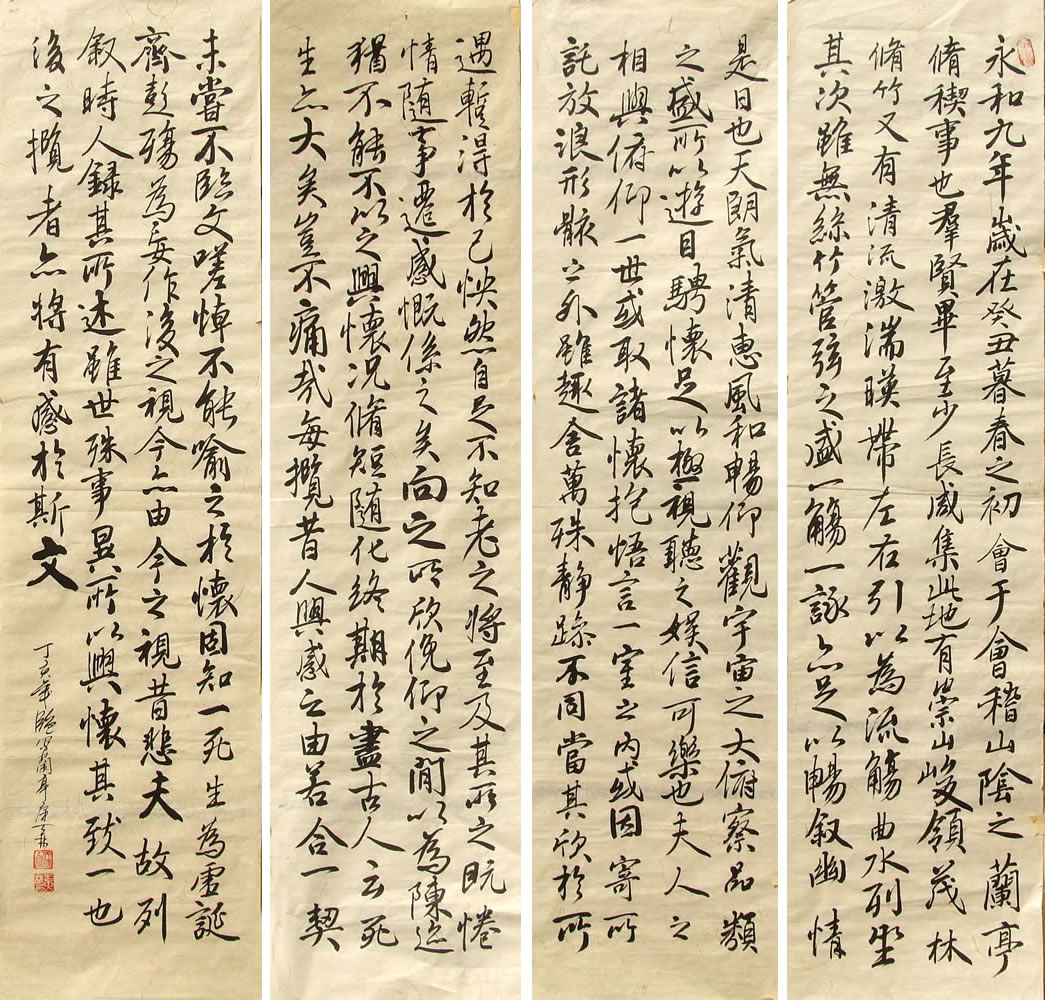 永和九年歲在癸丑暮春之初會于會稽山陰之蘭亭
脩稧事也羣賢畢至少長咸集此地有崇山峻領茂林
脩竹又有清流激湍暎帶左右引以為流觴曲水列坐
其次雖無絲竹管弦之盛一觴一詠亦足以暢叙幽情
是日也天朗氣清惠風和暢仰觀宇宙之大俯察品類
之盛所以遊目騁懷足以極視聽之娱信可樂也夫人之
相與俯仰一世或取諸懷抱悟言一室之内或因寄所
託放浪形骸之外雖趣舍萬殊静躁不同當其欣於所
遇暫得於己怏然自足不知老之將至及其所之既惓
情隨事遷感慨係之矣向之所欣俛仰之閒以為陳迹
猶不能不以之興懷况脩短隨化終期於盡古人云死
生亦大矣豈不痛哉每攬昔人興感之由若合一契
未嘗不臨文嗟悼不能喻之於懷固知一死生為虛誕
齊彭殤為妄作後之視今亦由今之視昔悲夫故列
叙時人録其所述雖世殊事異所以興懷其致一也
後之攬者亦將有感於斯文
丁亥年臨寫蘭亭序